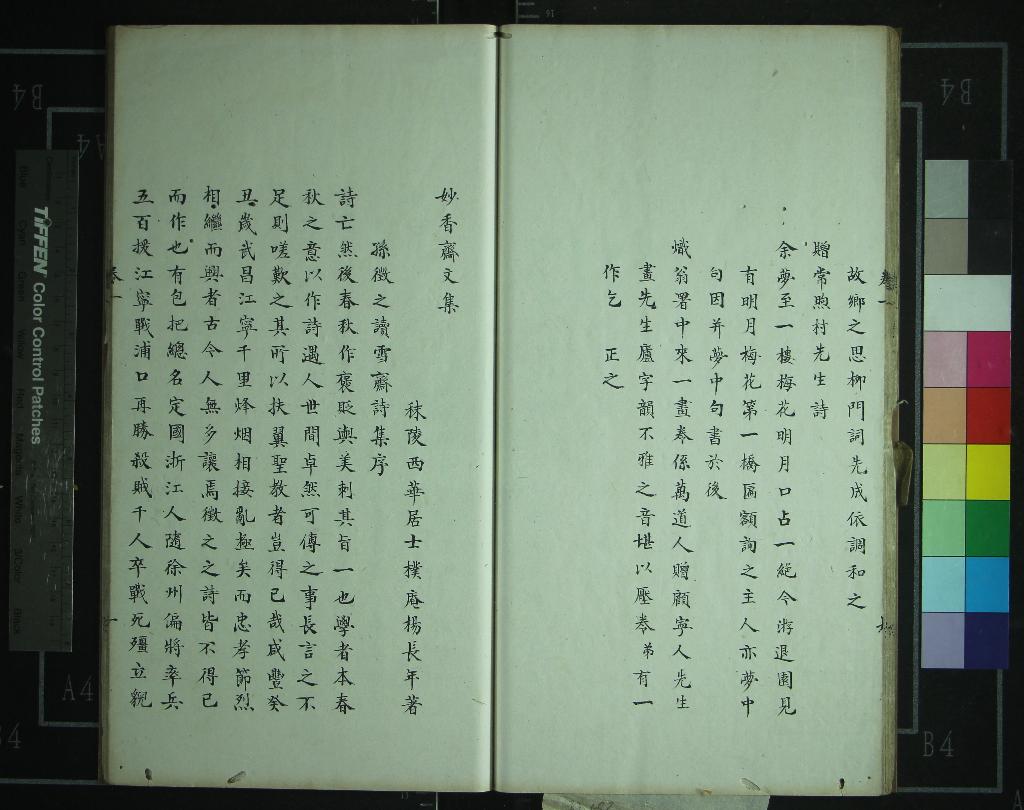 故鄉之思柳門詞先成依調和之
贈常煦村先生詩
余夢至一樓梅花明月口占一絕今游退園見
有明月梅花第一橋區額詢之主人亦夢中
句因并夢中句書於後
熾翁署中來一畫奉係萬道人贈顧寧人先生
畫先生廬字韻不雅之音堪以壓奉弟有一
作乞 正之
妙香齋文集
秣陵西華居士樸庵楊長年著
孫徵之讀雪齋詩集序
詩亡然後春秋作褒貶與美刺其旨一也學者本春
秋之意以作詩遇人世間卓然可傳之事長言之不
足則嗟歎之其所以扶翼聖教者豈得已哉咸豐癸
丑歲武昌江寧千里烽烟相接亂極矣而忠孝節烈
相繼而興者古今人無多讓焉徵之之詩皆不得已
而作也有包把總名定國浙江人隨徐州偏將率兵
五百援江寧戰浦口再勝殺賊千人卒戰死殭立貌
卷一
一
B4
A4
B4
A4
B4
TIFFEN Color Control Patches
Blue Cyan Green Yellow Red Magenta White 3/Color Black